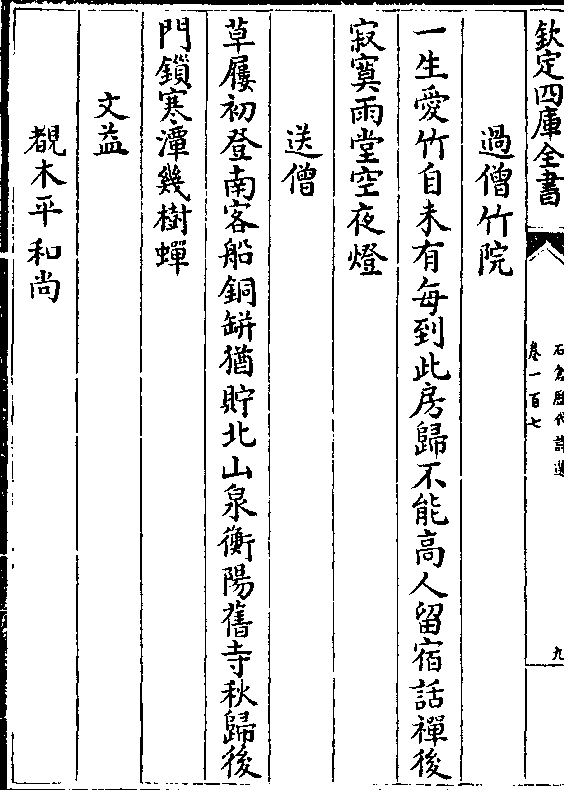 欽定四庫全書
石倉歷代詩選
卷一百七
九
過僧竹院
一生愛竹自未有每到此房歸不能高人留宿話禪後
寂寞雨堂空夜燈
送僧
草屨初登南客船銅缾猶貯北山泉衡陽舊寺秋歸後
門鎖寒潭幾樹蟬
文益
覩木平和尚